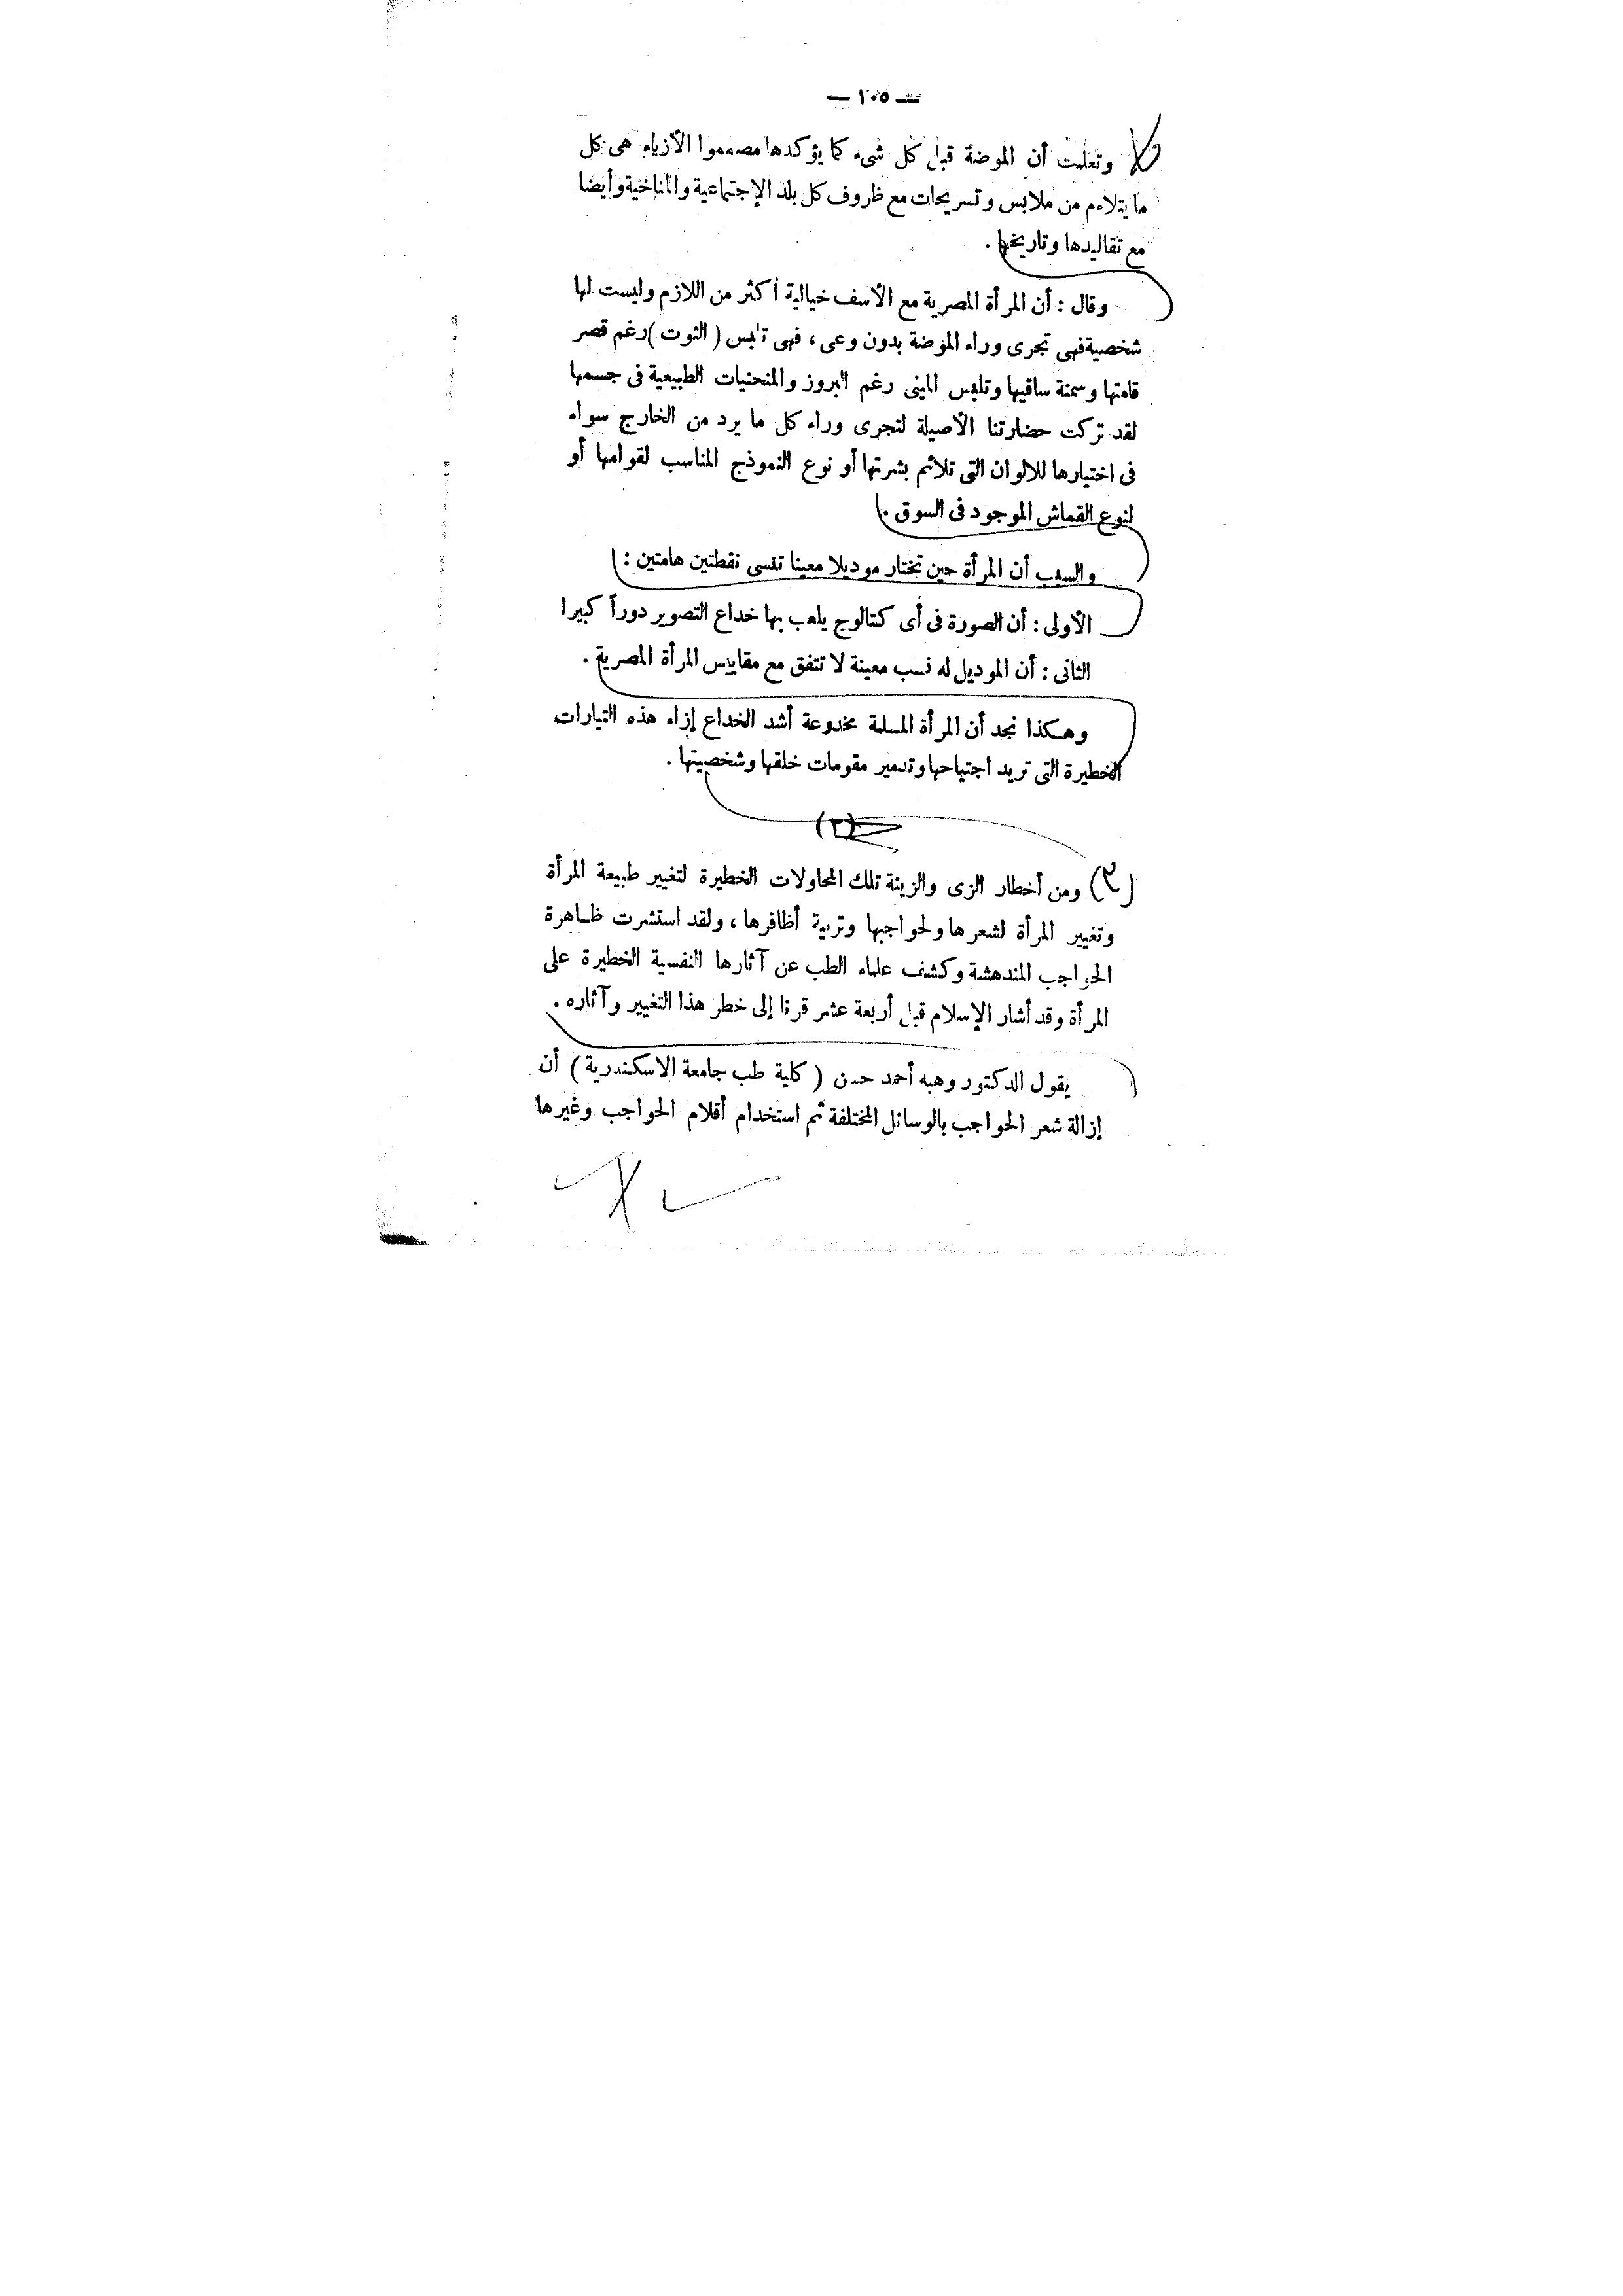 — ١٠٥ —
وتعلمت أن الموضة قبل كل شىء كما يؤكدها مصمموا الأزياء هى كل
ما يتلاءم من ملابس وتسريحات مع ظروف كل بلد الإجتماعية والمناخية وأيضا
مع تقاليدها وتاريخها .
وقال : أن المرأة المصرية مع الأسف خيالية أكثر من اللازم وليست لها
شخصية فهى تجرى وراء الموضة بدون وعى ، فهى تلبس ( الثوت ) رغم قصر
قامتها وسمنة ساقيها وتلبس المينى رغم البروز والمنحنيات الطبيعية فى جسمها
لقد تركت حضارتنا الأصيلة لتجرى وراء كل ما يرد من الخارج سواء
فى اختيارها للالوان التى تلائم بشرتها أو نوع النموذج المناسب لقوامها أو
لنوع القماش الموجود فى السوق .
والسبب أن المرأة حين تختار موديلا معينا تنسى نقطتين هامتين :
الأولى : أن الصورة فى أى كتالوج يلعب بها خداع التصوير دوراً كبيرا
الثانى : أن الموديل له نسب معينة لا تتفق مع مقاييس المرأة المصرية .
وهكذا نجد أن المرأة المسلمة مخدوعة أشد الخداع إزاء هذه التيارات
الخطيرة التى تريد اجتياحها وتدمير مقومات خلقها وشخصيتها .
(٢)
(٢) ومن أخطار الزى والزينة تلك المحاولات الخطيرة لتغيير طبيعة المرأة
وتغيير المرأة لشعرها ولحواجبها وتربية أظافرها ، ولقد استشرت ظاهرة
الحواجب المندهشة وكشف علماء الطب عن آثارها النفسية الخطيرة على
المرأة وقد أشار الإسلام قبل أربعة عشر قرنا إلى خطر هذا التغيير وآثاره .
يقول الدكتور وهبه أحمد حسن ( كلية طب جامعة الاسكندرية ) أن
إزالة شعر الحواجب بالوسائل المختلفة ثم استخدام أقلام الحواجب وغيرها